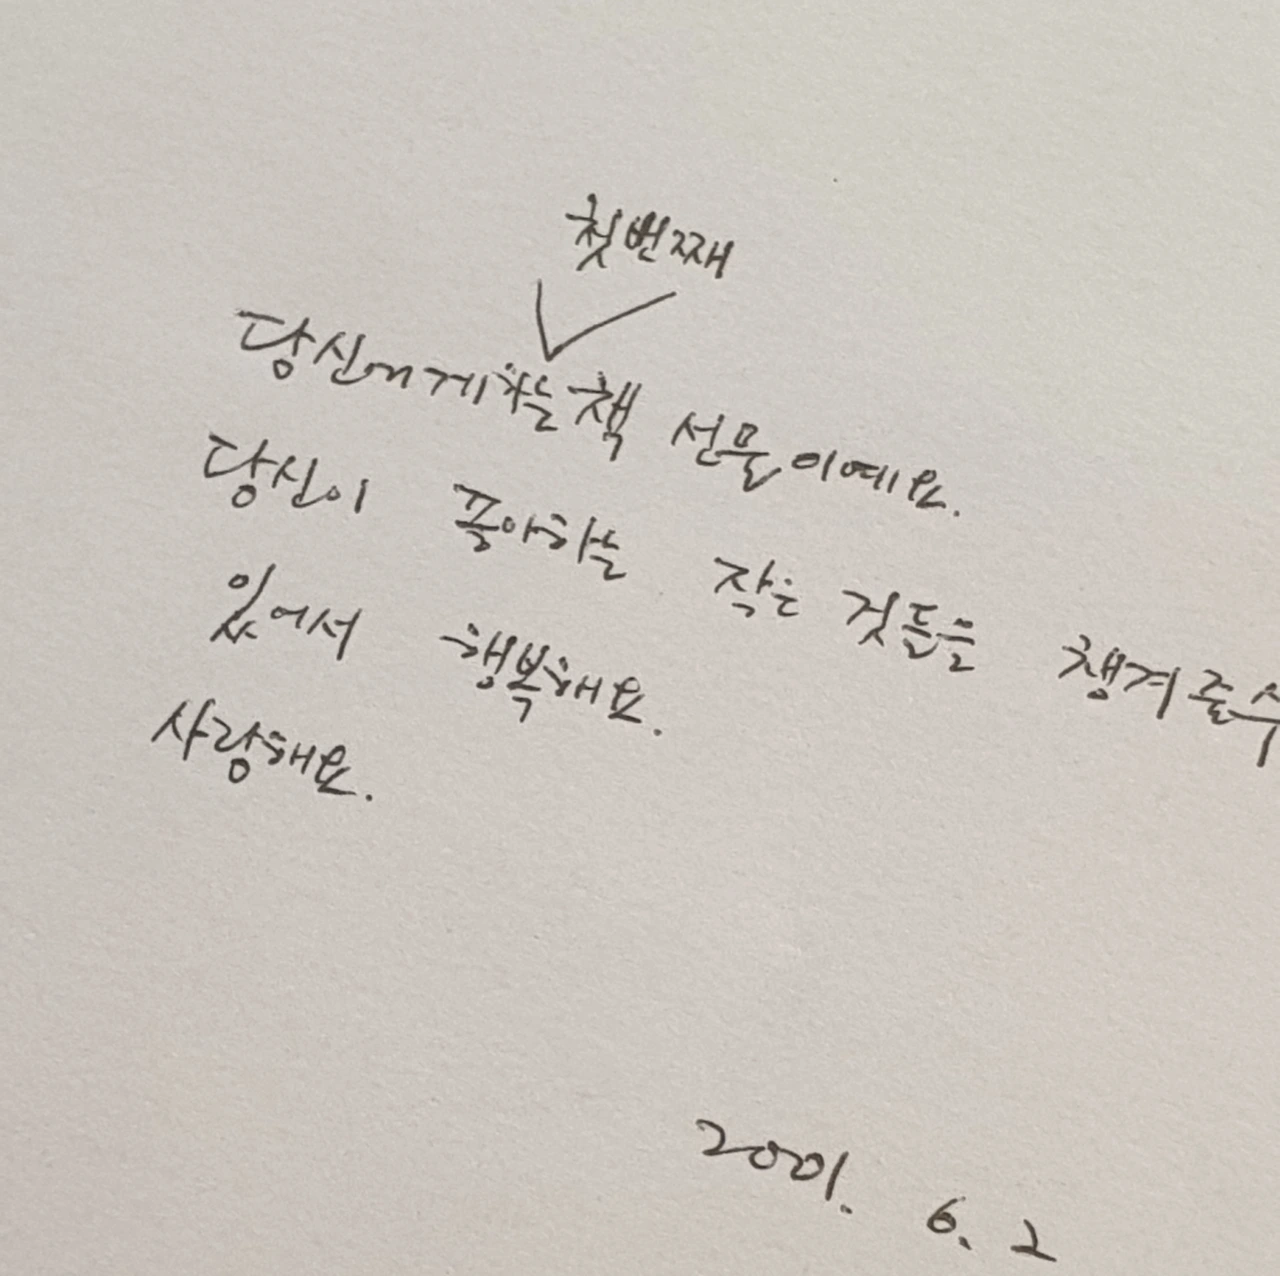 첫번째
당신에게 하는 책 선물이예요.
당신이 좋아하는 작은 것들을 챙겨줄수
있어서 행복해요.
사랑해요.
2001. 6. 2